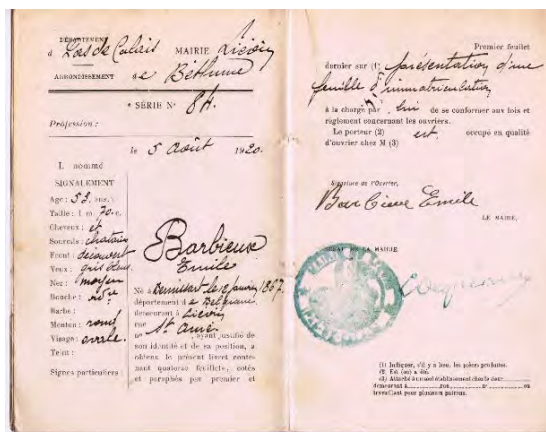 DÉPARTEMENT
d Pas de Calais MAIRIE Liévin
ARRONDISSEMENT de Béthune
SÉRIE N° 84.
Profession :
le 5 Août 1920.
I. nommé
SIGNALEMENT
Age : 53 ans.
Taille : 1 m. 70 c.
Cheveux : et
Sourcils : chatain
Front : découvert
Yeux : gris bleu
Nez : moyen
Bouche : id
Barbe :
Menton : rond
Visage : ovale.
Teint :
Signes particuliers :
Barbieux
Emile
Né à Bernissart le 12 janvier 1867.
département d e Belgique
demeurant à Liévin
rue St Amé
n° , ayant justifié de
son identité et de sa position, a
obtenu le présent livret conte-
nant quatorze feuillets, cotés
et paraphés par premier et
Premier feuillet
dernier sur (1) présentation d'une
feuille d'immatriculation
à la charge par lui de se conformer aux lois et
règlement concernant les ouvriers.
Le porteur (2) est occupé en qualité
d'ouvrier chez M (3)
Signature de l'Ouvrier,
Barbieux Emile
LE MAIRE,
SCEAU DE LA MAIRIE
(1) Indiquer, s'il y a lieu, les pièces produites.
(2) Est (ou) a été.
(3) Attaché à un seul établissement chez le sieur
demeurant à rue n° ou
travaillant pour plusieurs patrons.